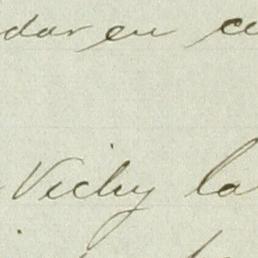 dar en
Vichy la